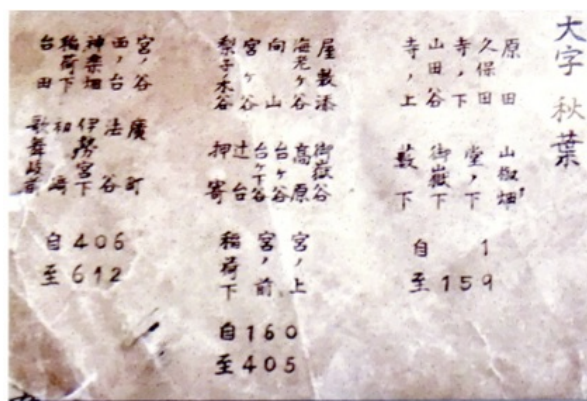 大字 秋葉
原田
久保田
寺ノ下
山田谷
寺ノ上
山椒畑
堂ノ下
御嶽下
薮下
自 1
至 159
屋敷添
海老ヶ谷
向山
宮ヶ谷
梨子木谷
御嶽谷
高原
台ヶ谷
台ヶ下谷
辻台
押寄
宮ノ上
宮ノ前
稲荷下
自 160
至 405
宮ノ谷
西ノ台
神楽畑
稲荷下
台田
廣町
法谷
伊勢宮下
自 406
至 612